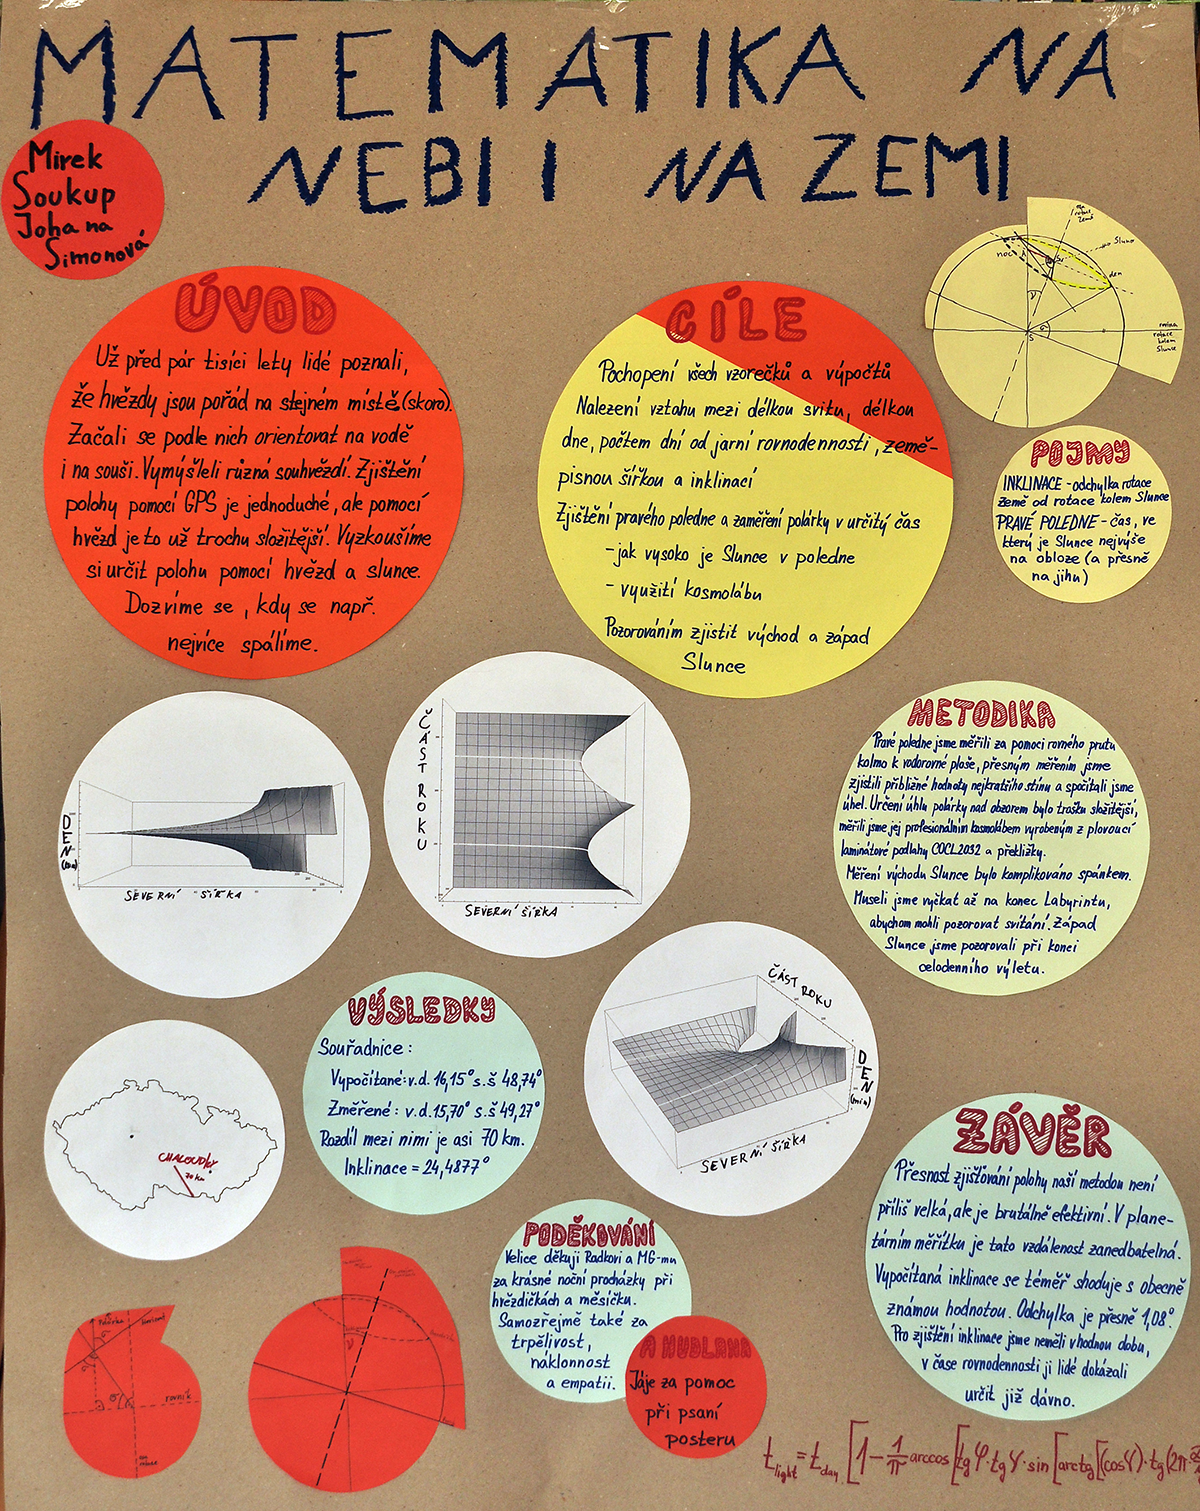 MATEMATIKA NA
NEBI I NA ZEMI
Mirek
Soukup
Johana
Šimonová
osa
rotace
Země
Slunce
noc
den
rovina
rotace
kolem
Slunce
S
ÚVOD
Už před pár tisíci lety lidé poznali,
že hvězdy jsou pořád na stejném místě (skoro).
Začali se podle nich orientovat na vodě
i na souši. Vymýšleli různá souhvězdí. Zjištění
polohy pomocí GPS je jednoduché, ale pomocí
hvězd je to už trochu složitější. Vyzkoušíme
si určit polohu pomocí hvězd a slunce.
Dozvíme se, kdy se např.
nejvíce spálíme.
CÍLE
Pochopení všech vzorečků a výpočtů
Nalezení vztahu mezi délkou svitu, délkou
dne, počtem dní od jarní rovnodennosti, země-
pisnou šířkou a inklinací
Zjištění pravého poledne a zaměření polárky v určitý čas
-jak vysoko je Slunce v poledne
- využití kosmolábu
Pozorováním zjistit východ a západ
Slunce
POJMY
INKLINACE - odchylka rotace
Země od rotace kolem Slunce
PRAVÉ POLEDNE - čas, ve
který je Slunce nejvýše
na obloze (a přesně
na jihu)
DEN
SEVERNÍ ŠÍŘKA
ČÁST ROKU
SEVERNÍ ŠÍŘKA
METODIKA
Pravé poledne jsme měřili za pomoci rovného prutu
kolmo k vodorovné ploše, přesným měřením jsme
zjistili přibližné hodnoty nejkratšího stínu a spočítali jsme
úhel. Určení úhlu polárky nad obzorem bylo trošku složitější,
měřili jsme jej profesionálním kosmolábem vyrobeným z plovoucí
laminátové podlahy COCL2032 a překližky.
Měření východu Slunce bylo komplikováno spánkem.
Museli jsme vyčkat až na konec Labyrintu,
abychom mohli pozorovat svítání. Západ
Slunce jsme pozorovali při konci
celodenního výletu.
ČÁST ROKU
DEN
(min)
SEVERNÍ ŠÍŘKA
VÝSLEDKY
Souřadnice:
Vypočítané: v.d. 16,15° s.š 48,74°
Změřené: v.d. 15,70° s.š 49,27°
Rozdíl mezi nimi je asi 70 km.
Inklinace = 24,4877°
CHALOUPKY
70 km
ZÁVĚR
Přesnost zjišťování polohy naší metodou není
příliš velká, ale je brutálně efektivní. V plane-
tárním měřítku je tato vzdálenost zanedbatelná.
Vypočítaná inklinace se téměř shoduje s obecně
známou hodnotou. Odchylka je přesně 1,08°.
Pro zjištění inklinace jsme neměli vhodnou dobu,
v čase rovnodennosti ji lidé dokázali
určit již dávno.
PODĚKOVÁNÍ
Velice děkuji Radkovi a MG-mu
za krásné noční procházky při
hvězdičkách a měsíčku.
Samozřejmě také za
trpělivost,
náklonnost
a empatii.
A HUDLANA
Jáje za pomoc
při psaní
posteru
Polárka
horizont
rovník
osa
rotace
t light = t day [1 - 1/π arccos [tg φ · tg γ · sin [arctg [(cos γ) · tg (2π ·